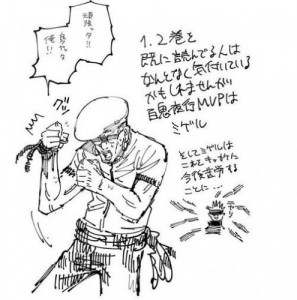 頑張ッタ!!
良クヤッタ
俺!!
1.2巻を
既に読んでる人は
なんとなく気付いている
かもしれませんが
百鬼夜行MVPは
ミゲル
グッ
そしてミゲルは
これをキッカケに
今後苦労する
ことに…